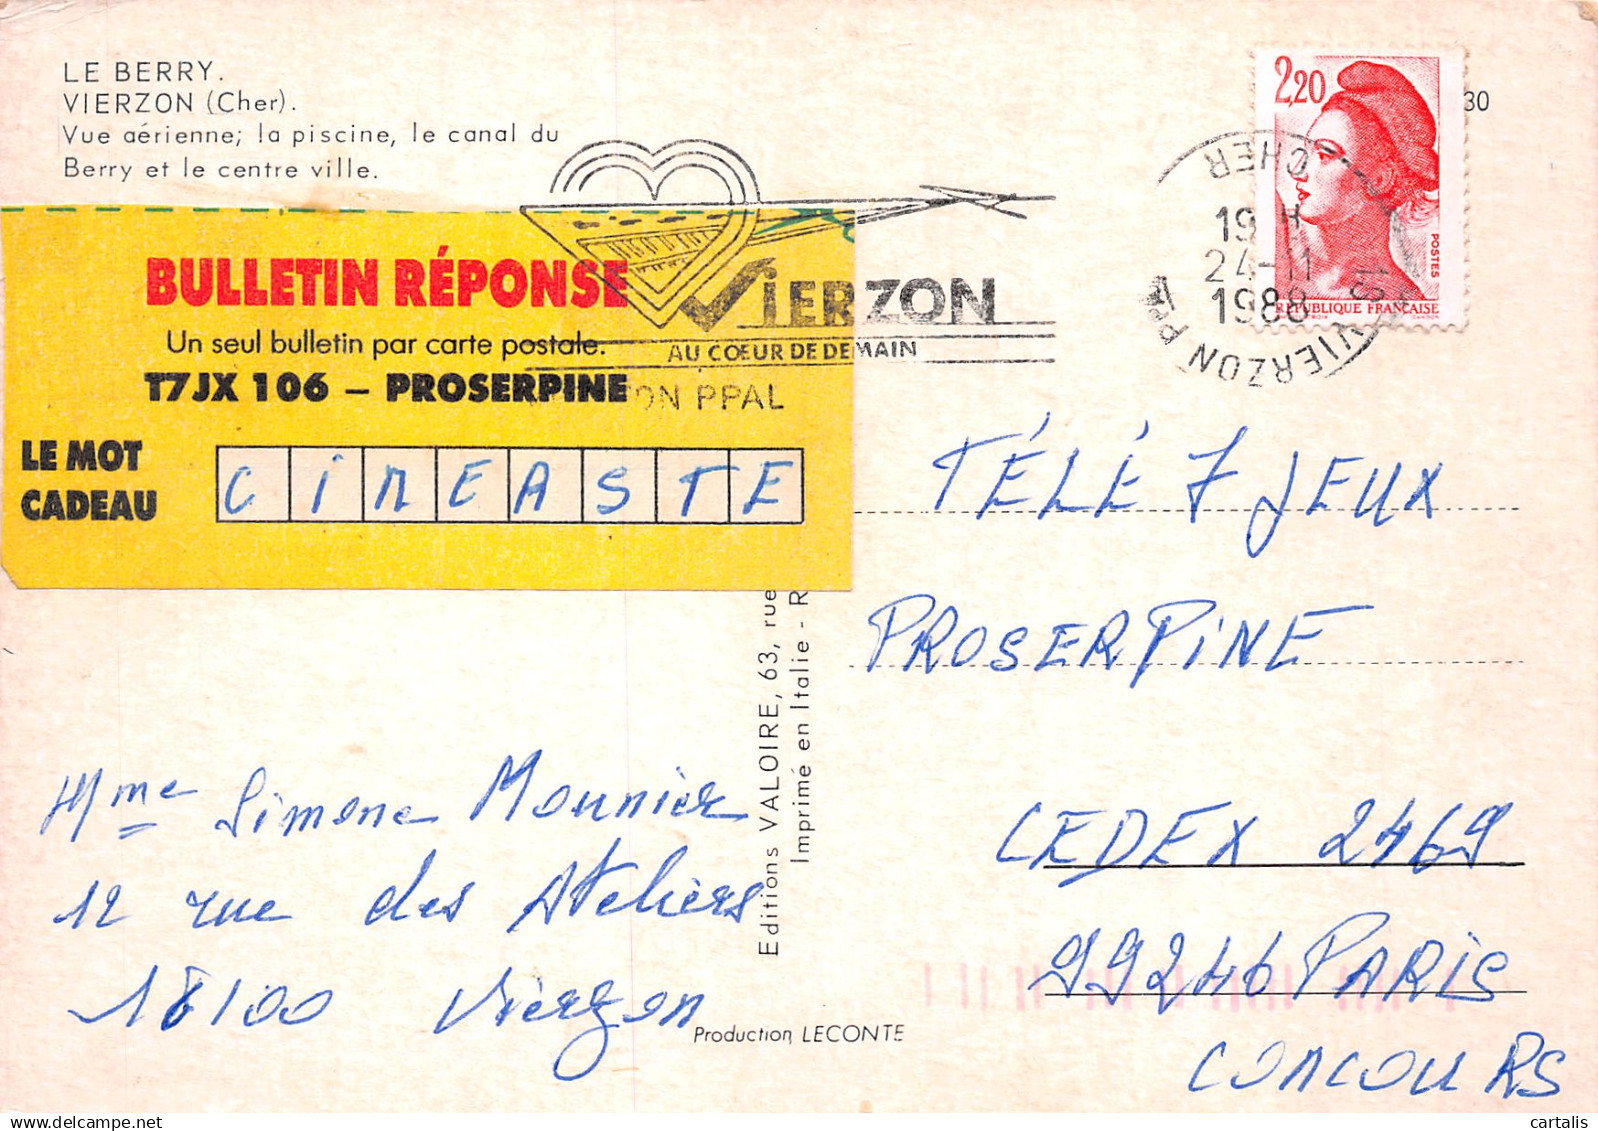 LE BERRY.
VIERZON (Cher).
Vue aérienne; la piscine, le canal du
Berry et le centre ville.
30
2,20
POSTES
RÉPUBLIQUE FRANÇAISE
CHER
19 H
24-11
1988
VIERZON Ppal
VIERZON
AU COEUR DE DEMAIN
PPAL
BULLETIN RÉPONSE
Un seul bulletin par carte postale.
T7JX 106 – PROSERPINE
LE MOT
CADEAU
CINEASTE
TÉLÉ 7 JEUX
PROSERPINE
CEDEX 2469
99246 PARIS
CONCOURS
Mme Simone Mounier
12 rue des Ateliers
18100 Vierzon
Editions VALOIRE, 63, rue
Imprimé en Italie - R
Production LECONTE
cartalis